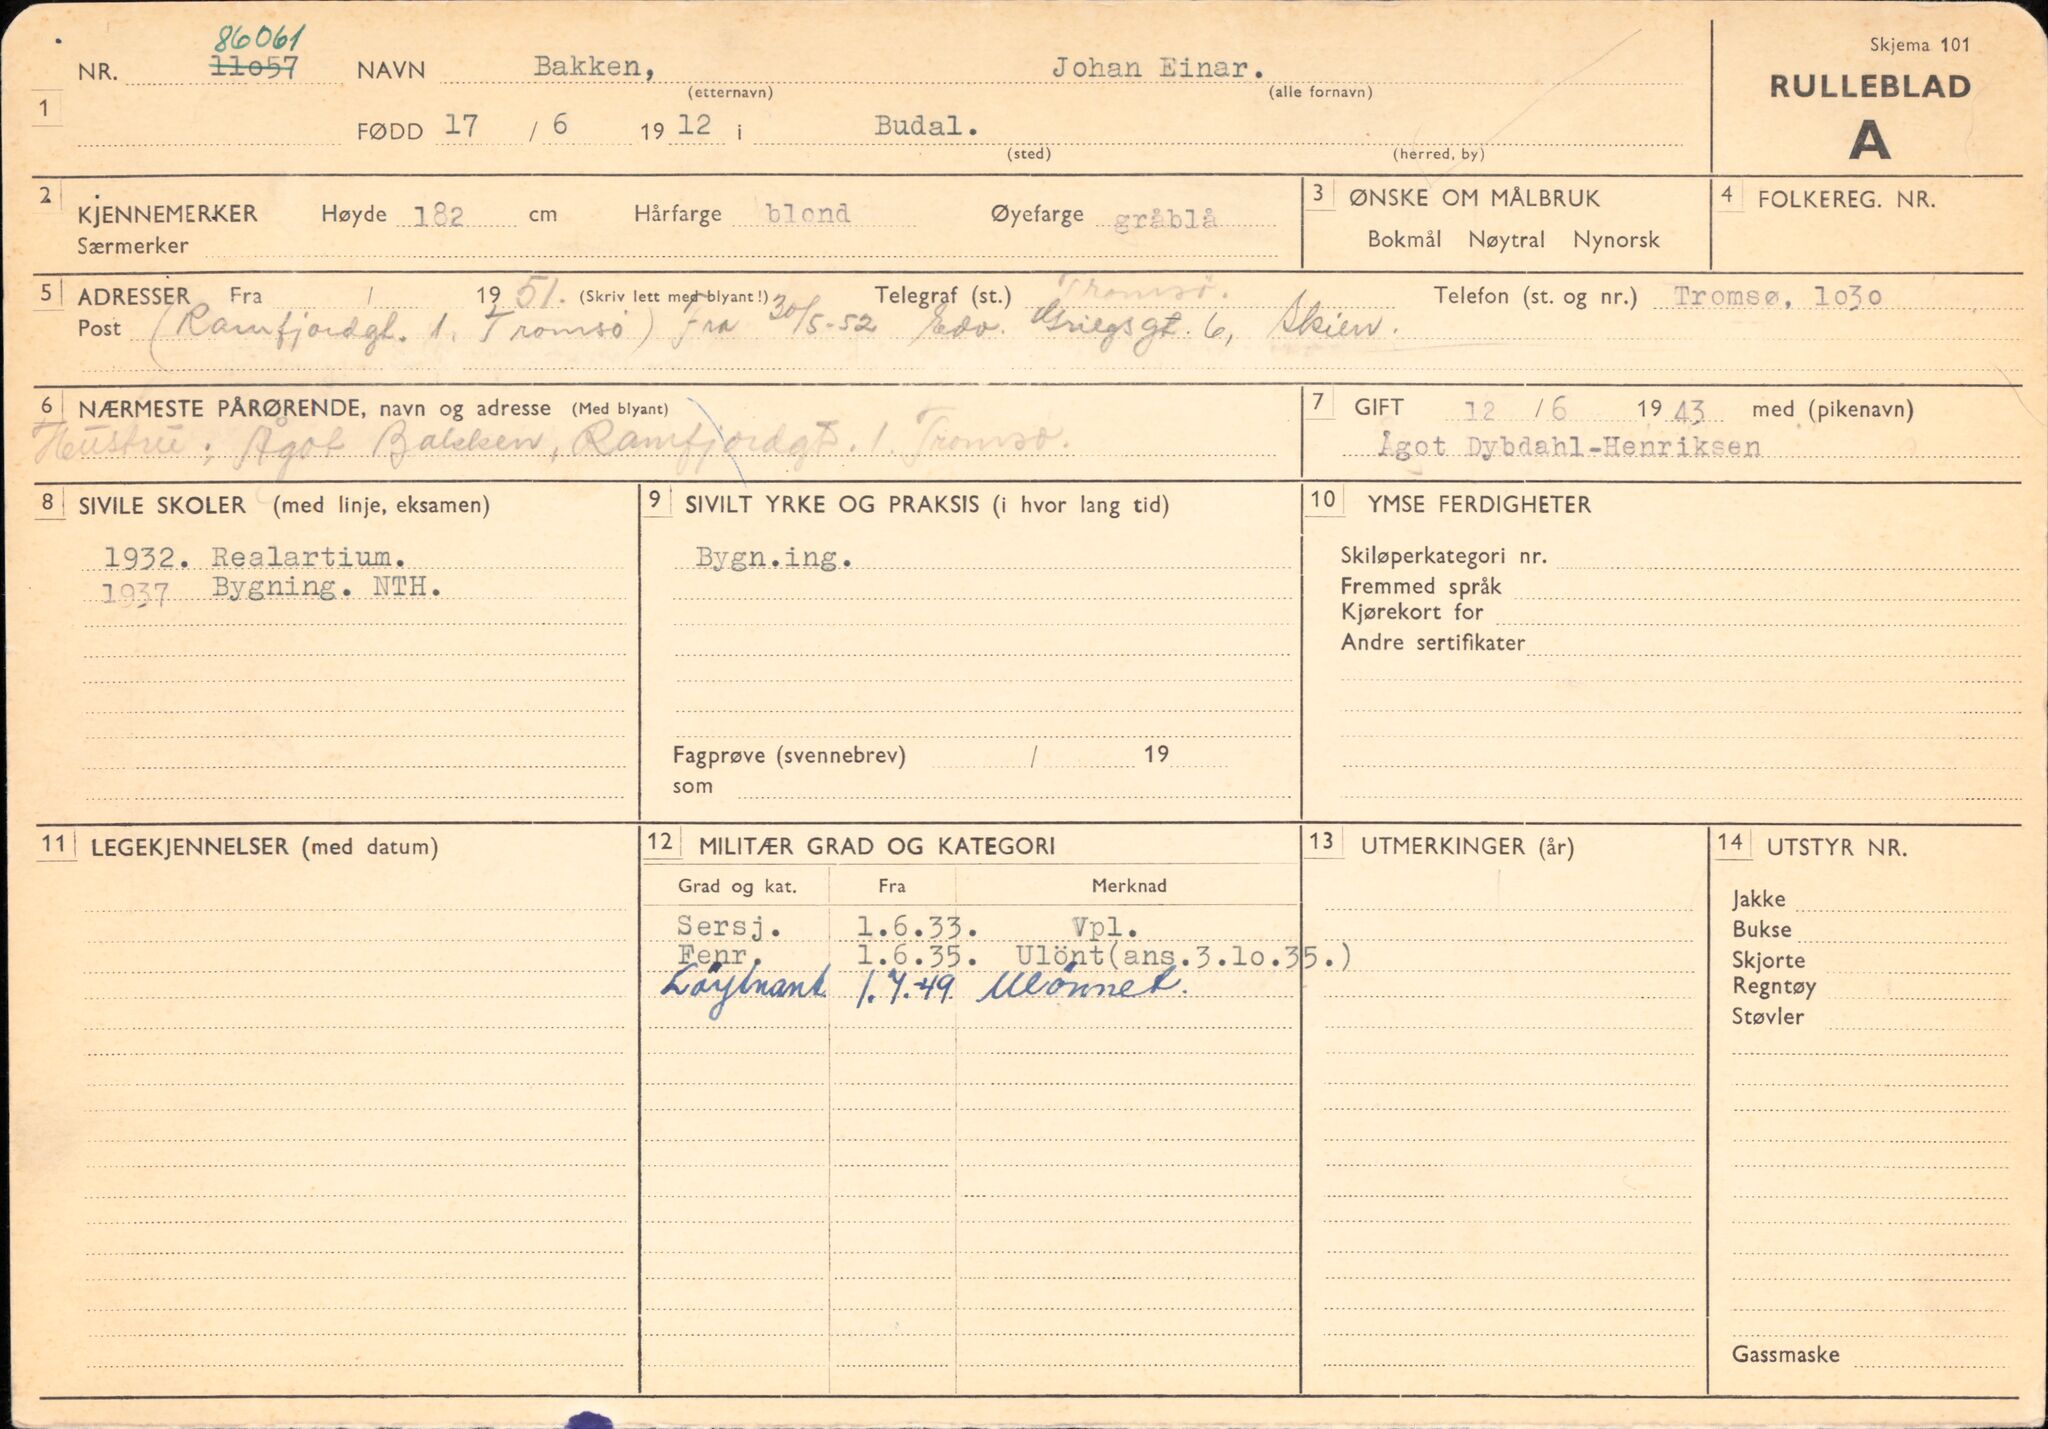 Skjema 101
RULLEBLAD
A
86061
NR. 11o57 NAVN Bakken, Johan Einar.
(etternavn) (alle fornavn)
1
FØDD 17 / 6 1912 i Budal.
(sted) (herred, by)
2 KJENNEMERKER Høyde 182 cm Hårfarge blond Øyefarge gråblå
Særmerker
3 ØNSKE OM MÅLBRUK
Bokmål Nøytral Nynorsk
4 FOLKEREG. NR.
5 ADRESSER Fra / 19 51. (Skriv lett med blyant!) Telegraf (st.) Tromsø. Telefon (st. og nr.) Tromsø, 1o3o
Post (Ramfjordgt. 1. Tromsø) Fra 30/5-52 Edv. Griegsgt. 6, Skien.
6 NÆRMESTE PÅRØRENDE, navn og adresse (Med blyant)
Hustru: Ågot Bakken, Ramfjordgt. 1. Tromsø.
7 GIFT 12 / 6 1943 med (pikenavn)
Ågot Dybdahl-Henriksen
8 SIVILE SKOLER (med linje, eksamen)
1932. Realartium.
1937 Bygning. NTH.
9 SIVILT YRKE OG PRAKSIS (i hvor lang tid)
Bygn.ing.
Fagprøve (svennebrev) / 19
som
10 YMSE FERDIGHETER
Skiløperkategori nr.
Fremmed språk
Kjørekort for
Andre sertifikater
11 LEGEKJENNELSER (med datum)
12 MILITÆR GRAD OG KATEGORI
Grad og kat. Fra Merknad
Sersj. 1.6.33. Vpl.
Fenr. 1.6.35. Ulönt(ans.3.1o.35.)
Löytnant 1.7.49. Ulönnet.
13 UTMERKINGER (år)
14 UTSTYR NR.
Jakke
Bukse
Skjorte
Regntøy
Støvler
Gassmaske